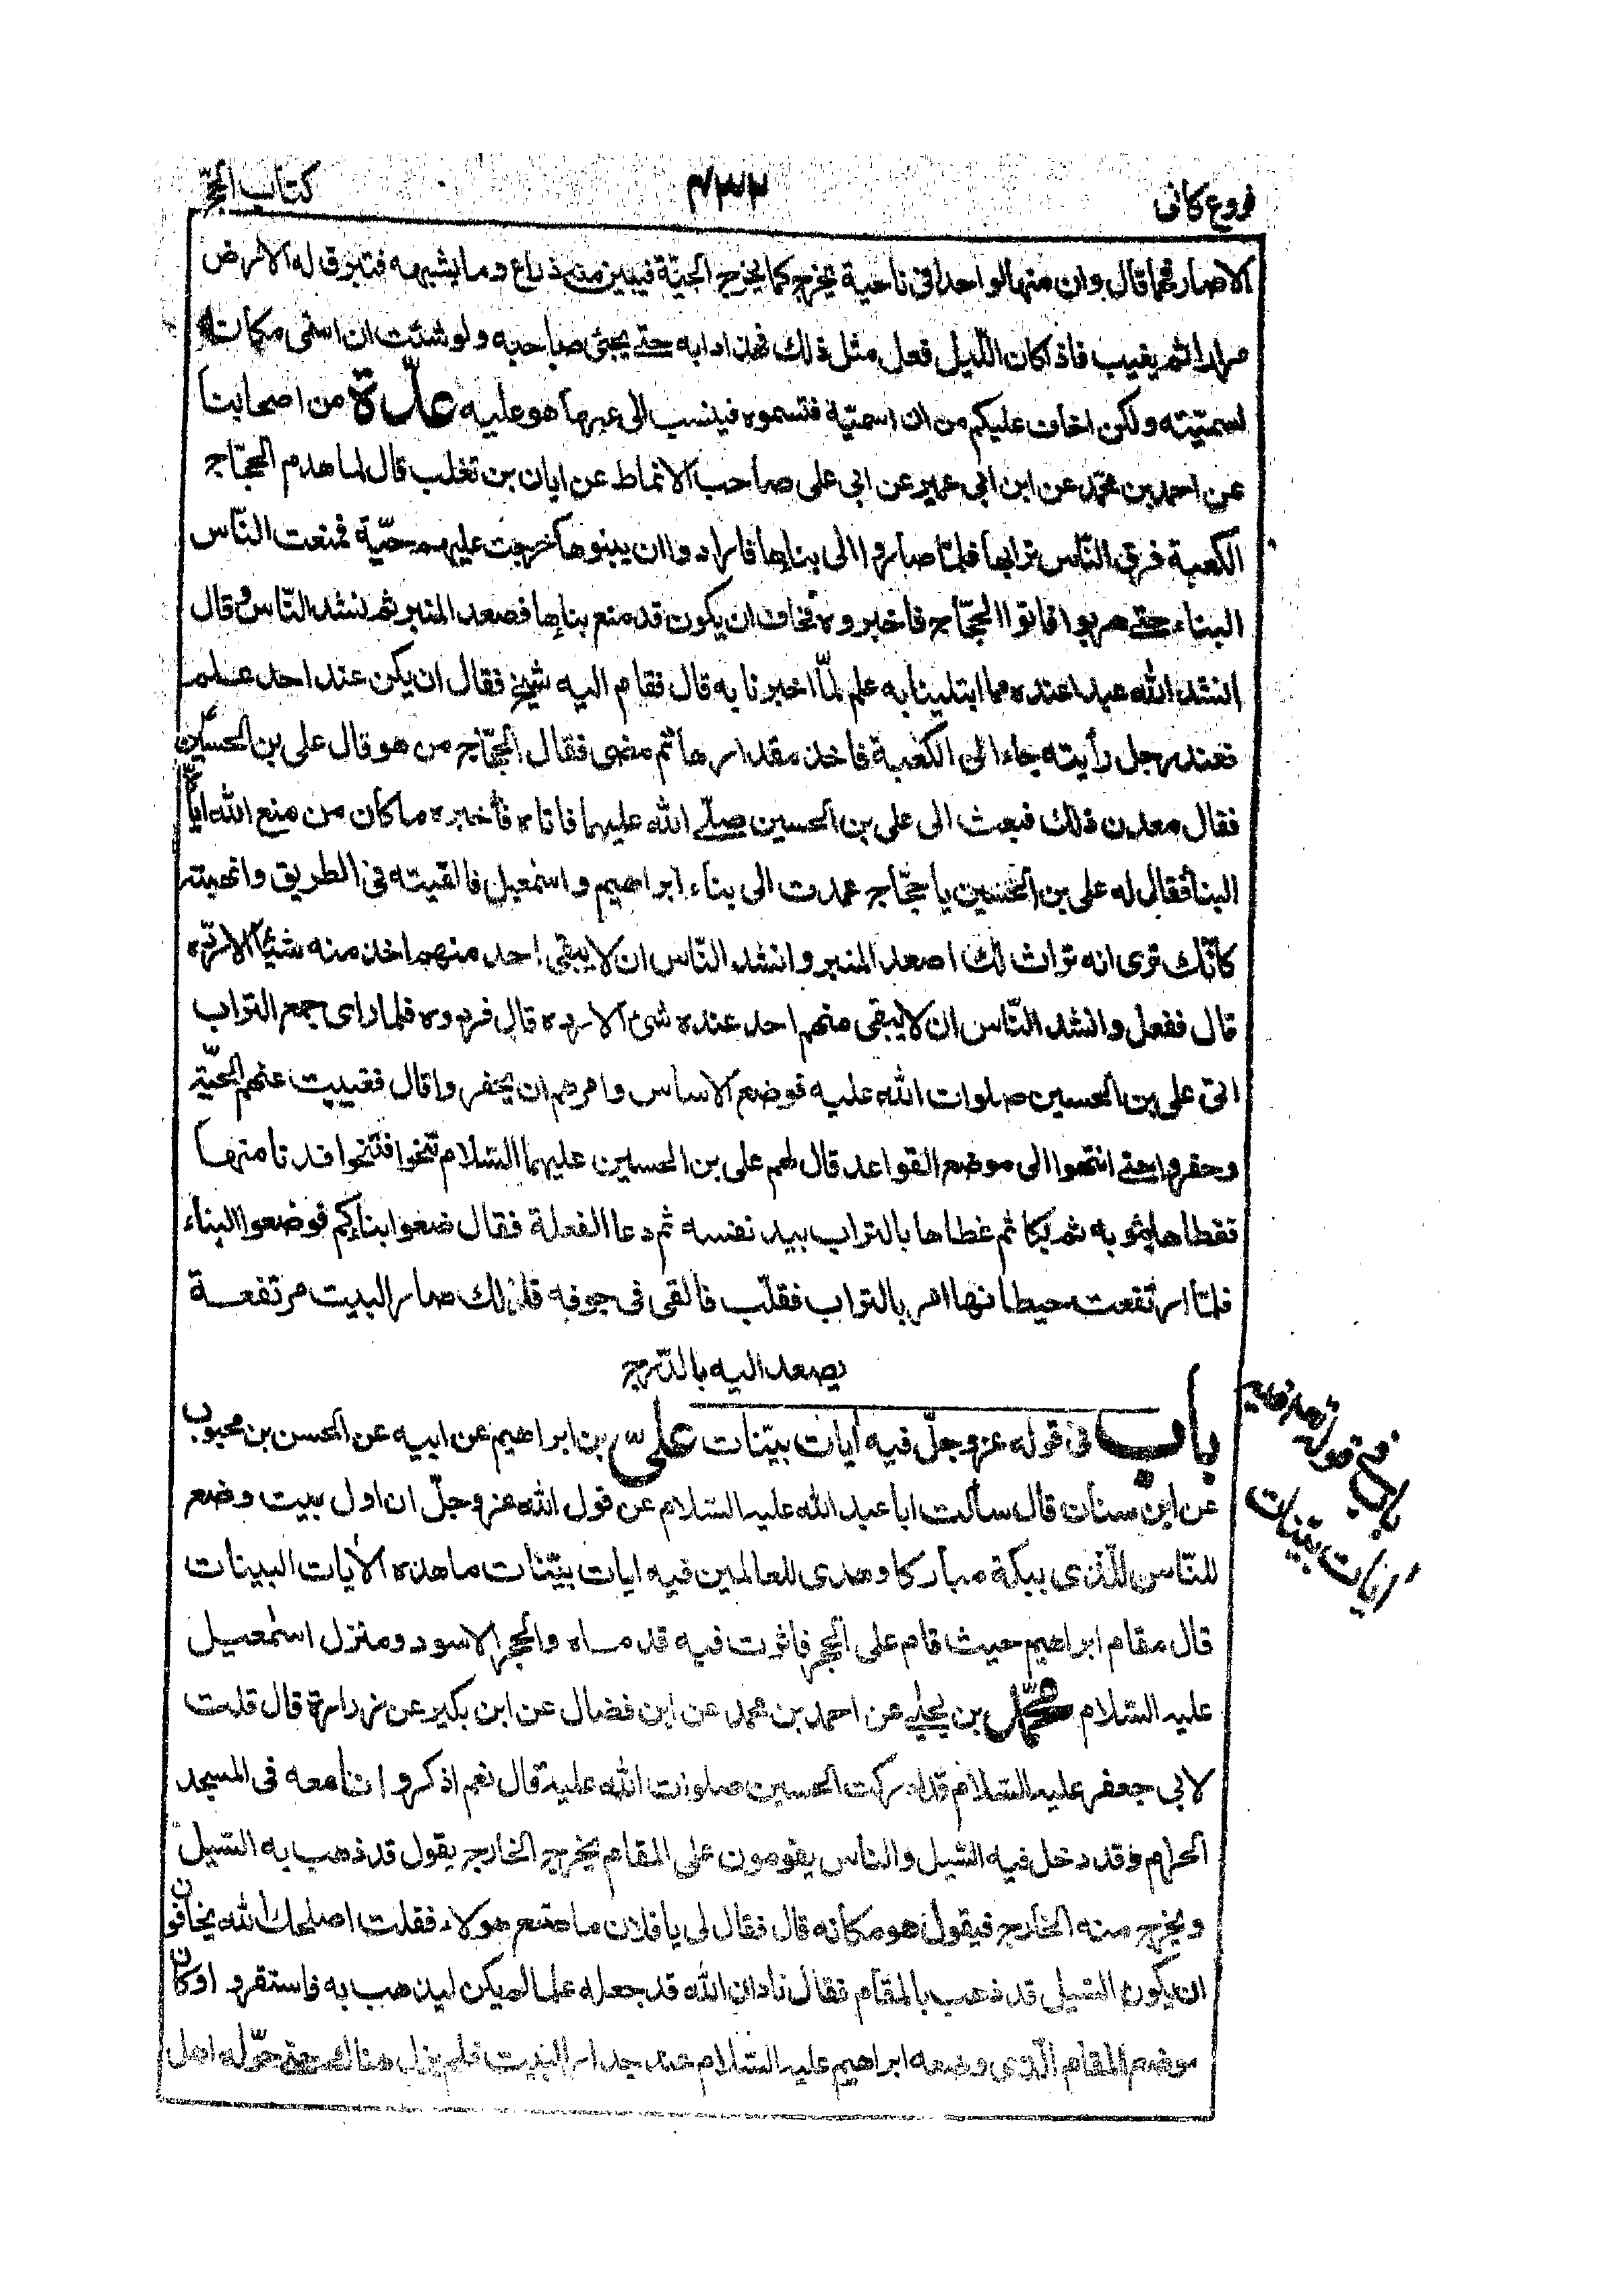 فروع کافی
۴/۳۲
کتاب الحجّ
الاصار ثم قال وان منها لو احدا فى ناحية يخرج كما يخرج الحيّة فيبين منه ذراع وما يشبهه فتبرق له الارض
مرارا ثم يغيب فاذا كان اللّيل فعل مثل ذلك فهذا دابه حتى يجئ صاحبه ولو شئت ان اسمى مكانه
لسمّيته ولكن اخاف عليكم من ان اسمّيه فتسموه فينسب الى غير ما هو عليه عدّة من اصحابنا
عن احمد بن محمّد عن ابن ابى عمير عن ابى على صاحب الانماط عن ابان بن تغلب قال لما هدم الحجّاج
الكعبة فرق النّاس ترابها فلمّا صاروا الى بناءها فارادوا ان يبنوها خرجت عليهم حيّة فمنعت النّاس
البناء حتى هربوا فاتوا الحجّاج فاخبروه فخاف ان يكون قد منع بناءها فصعد المنبر ثم نشد النّاس وقال
انشد الله عبدا عنده مما ابتلينا به علم لمّا اخبرنا به قال فقام اليه شيخ فقال ان يكن عند احد علم
فعند رجل رأيته جاء الى الكعبة فاخذ مقدارها ثم مضى فقال الحجّاج من هو قال على بن الحسين
فقال معدن ذلك فبعث الى على بن الحسين صلّى الله عليهما فاتاه فأخبره ما كان من منع الله ايّاه
البنأ فقال له على بن الحسين يا حجّاج عمدت الى بناء ابراهيم واسمعيل فالقيته فى الطريق وانهبته
كانّك ترى انه تراث لك اصعد المنبر وانشد النّاس ان لا يبقى احد منهم اخذ منه شيئا الا ردّه
قال ففعل وانشد النّاس ان لا يبقى منهم احد عنده شئ الا رده قال فردوه فلما راى جمع التراب
اتى على بن الحسين صلوات الله عليه فوضع الاساس وامرهم ان يحفروا قال فتغيبت عنهم الحيّة
وحفروا حتى انتهوا الى موضع القواعد قال لهم على بن الحسين عليهما السّلام تنحّوا فتنحّوا فدنا منها
فغطاها بثوبه ثم بكا ثم غطاها بالتراب بيد نفسه ثم دعا الفعلة فقال ضعوا بناءكم فوضعوا البناء
فلمّا ارتفعت حيطانها امر بالتراب فقلّب فالقى فى جوفه فلذلك صار البيت مرتفعة
يصعد اليه بالدّرج
باب فى قوله عز وجلّ فيه ايات بيّنات علىّ بن ابراهيم عن ابيه عن الحسن بن محبوب
عن ابن سنان قال سألت ابا عبد الله عليه السّلام عن قول الله عز وجلّ ان اول بيت وضع
للنّاس للّذى ببكة مباركا وهدى للعالمين فيه ايات بيّنات ما هذه الأيات البينات
قال مقام ابراهيم حيث قام على الحجر فاثرت فيه قدماه والحجر الاسود ومنزل اسمعيل
عليه السّلام محمّد بن يحيى عن احمد بن محمد عن ابن فضال عن ابن بكير عن زرارة قال قلت
لابى جعفر عليه السّلام قد ادركت الحسين صلوات الله عليه قال نعم اذكر وانا معه فى المسجد
الحرام وقد دخل فيه السّيل والناس يقومون على المقام يخرج الخارج يقول قد ذهب به السّيل
ويخرج منه الخارج فيقول هو مكانه قال فقال لى يا فلان ما صنع هولاء فقلت اصلحك الله يخافون
ان يكون السّيل قد ذهب بالمقام فقال ناد ان الله قد جعله علما لم يكن ليذهب به فاستقروا وكان
موضع المقام الّذى وضعه ابراهيم عليه السّلام عند جدار البيت فلم يزل هناك حتى حوّله اهل
باب فى قوله تعالى فيه
أيات بيّنات